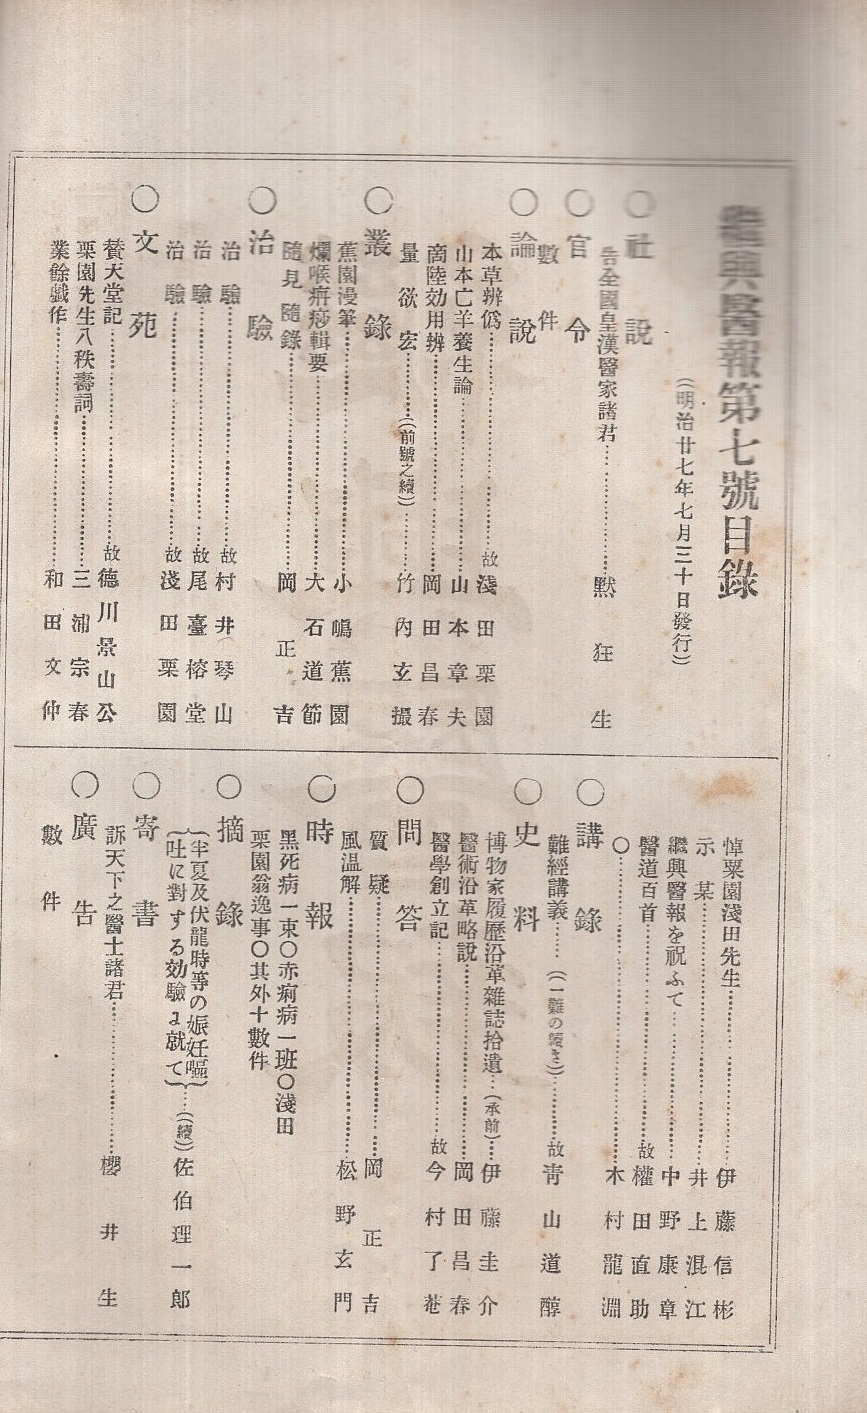 繼興醫報第七號目錄
（明治廿七年七月三十日發行）
○社說
告全國皇漢醫家諸君 默狂生
○官令
數件
○論說
本草辨僞 故淺田栗園
山本亡羊養生論 山本章夫
商陸効用辨 岡田昌春
量欲宏（前號之續） 竹內玄撮
○叢錄
蕉園漫筆 小嶋蕉園
爛喉痧輯要 大石道節
隨見隨錄 岡正吉
○治驗
治驗 故村井琴山
治驗 故尾臺榕堂
治驗 故淺田栗園
○文苑
贊天堂記 故德川景山公
栗園先生八秩壽詞 三浦宗春
業餘戯作 和田文仲
悼粟園淺田先生 伊藤信彬
示某 井上混江
繼興醫報を祝ふて 中野康章
醫道百首 故權田直助
○ 木村龍淵
○講錄
難經講義（一難の續き） 故靑山道醇
○史料
博物家履歷沿革雜誌拾遺（承前） 伊藤圭介
醫術沿革略說 岡田昌春
醫學創立記 故今村了菴
○問答
質疑 岡正吉
風溫解 松野玄門
○時報
黑死病一束○赤痢病一班○淺田
栗園翁逸事○其外十數件
○摘錄
半夏及伏龍時等の娠妊嘔
吐に對する効驗に就て（續） 佐伯理一郎
○寄書
訴天下之醫士諸君 櫻井生
○廣告
數件